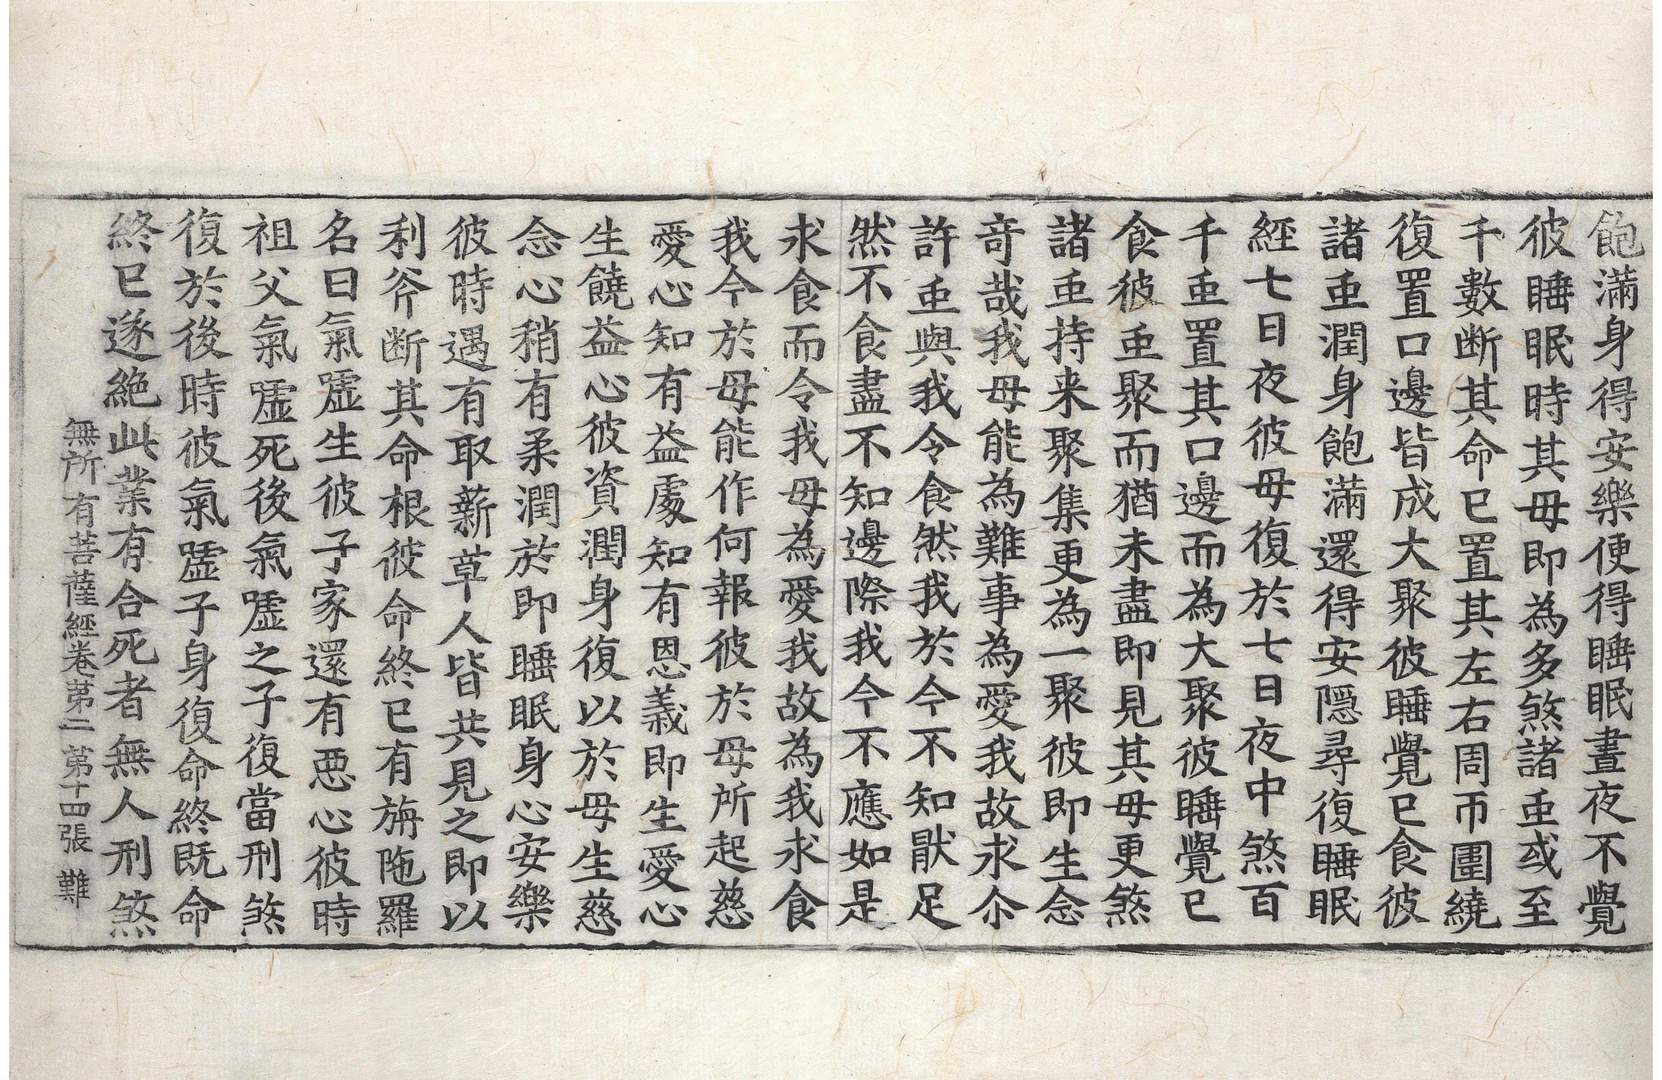 飽滿身得安樂便得睡眠晝夜不覺
彼睡眠時其母即為多煞諸䖝或至
千數断其命已置其左右周帀圍繞
復置口邊皆成大聚彼睡覺已食彼
諸䖝潤身飽滿還得安隱尋復睡眠
經七日夜彼母復於七日夜中煞百
千䖝置其口邊而為大聚彼睡覺已
食彼䖝聚而猶未盡即見其母更煞
諸䖝持来聚集更為一聚彼即生念
竒哉我母能為難事為愛我故求尒
許䖝與我令食然我於今不知猒足
然不食盡不知邊際我今不應如是
求食而令我母為愛我故為我求食
我今於母能作何報彼於母所起慈
愛心知有益處知有恩義即生愛心
生饒益心彼資潤身復以於母生慈
念心稍有柔潤於即睡眠身心安樂
彼時遇有取薪草人皆共見之即以
利斧断其命根彼命終已有旃陁羅
名曰氣嘘生彼子家還有惡心彼時
祖父氣嘘死後氣嘘之子復當刑煞
復於後時彼氣嘘子身復命終既命
終已遂絶此業有合死者無人刑煞
無所有菩薩經卷第二 第十四張 難